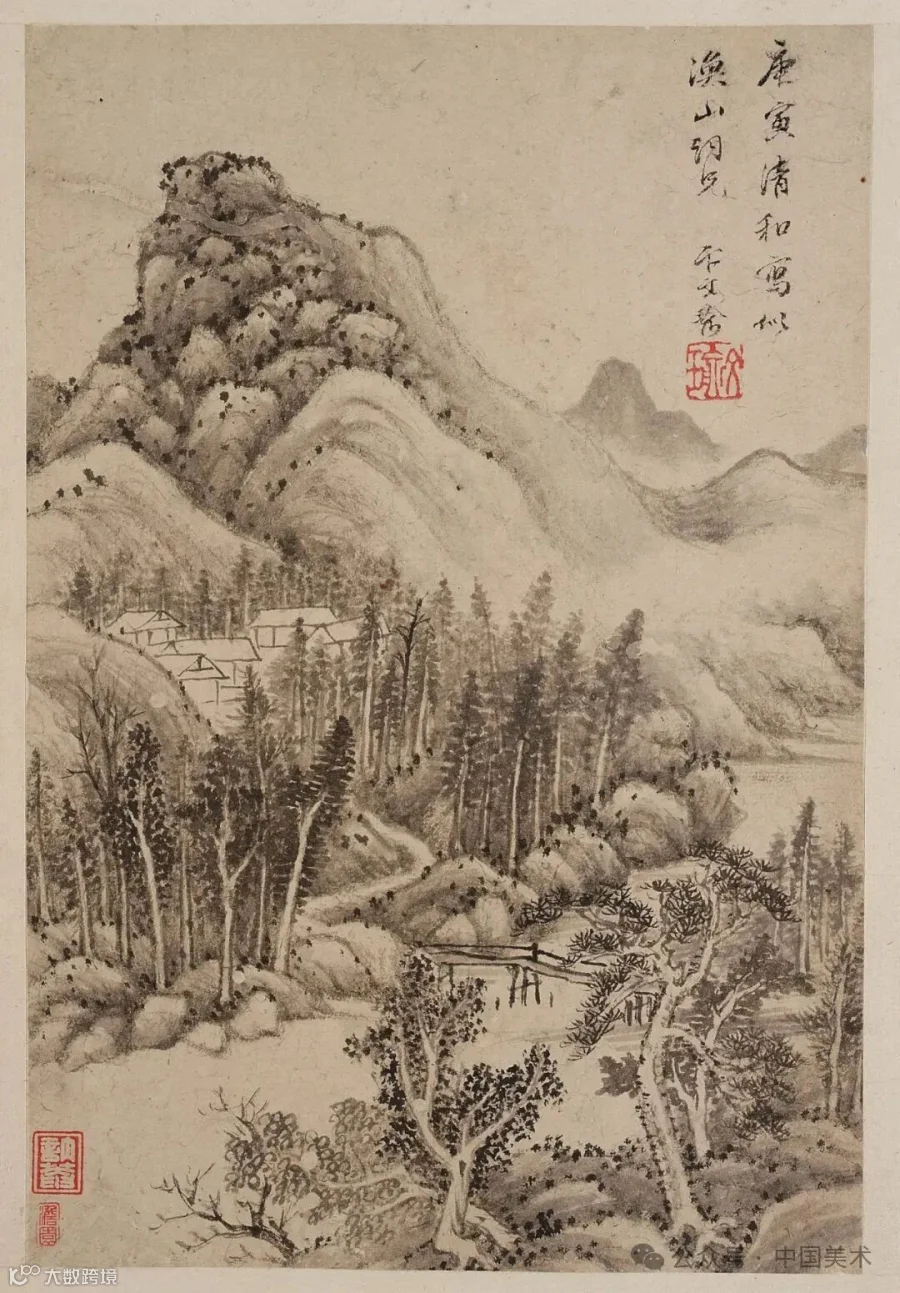 庚寅清和寫似
渙山詞兄 卞文瑜
公众号 · 中国美术
大数跨境